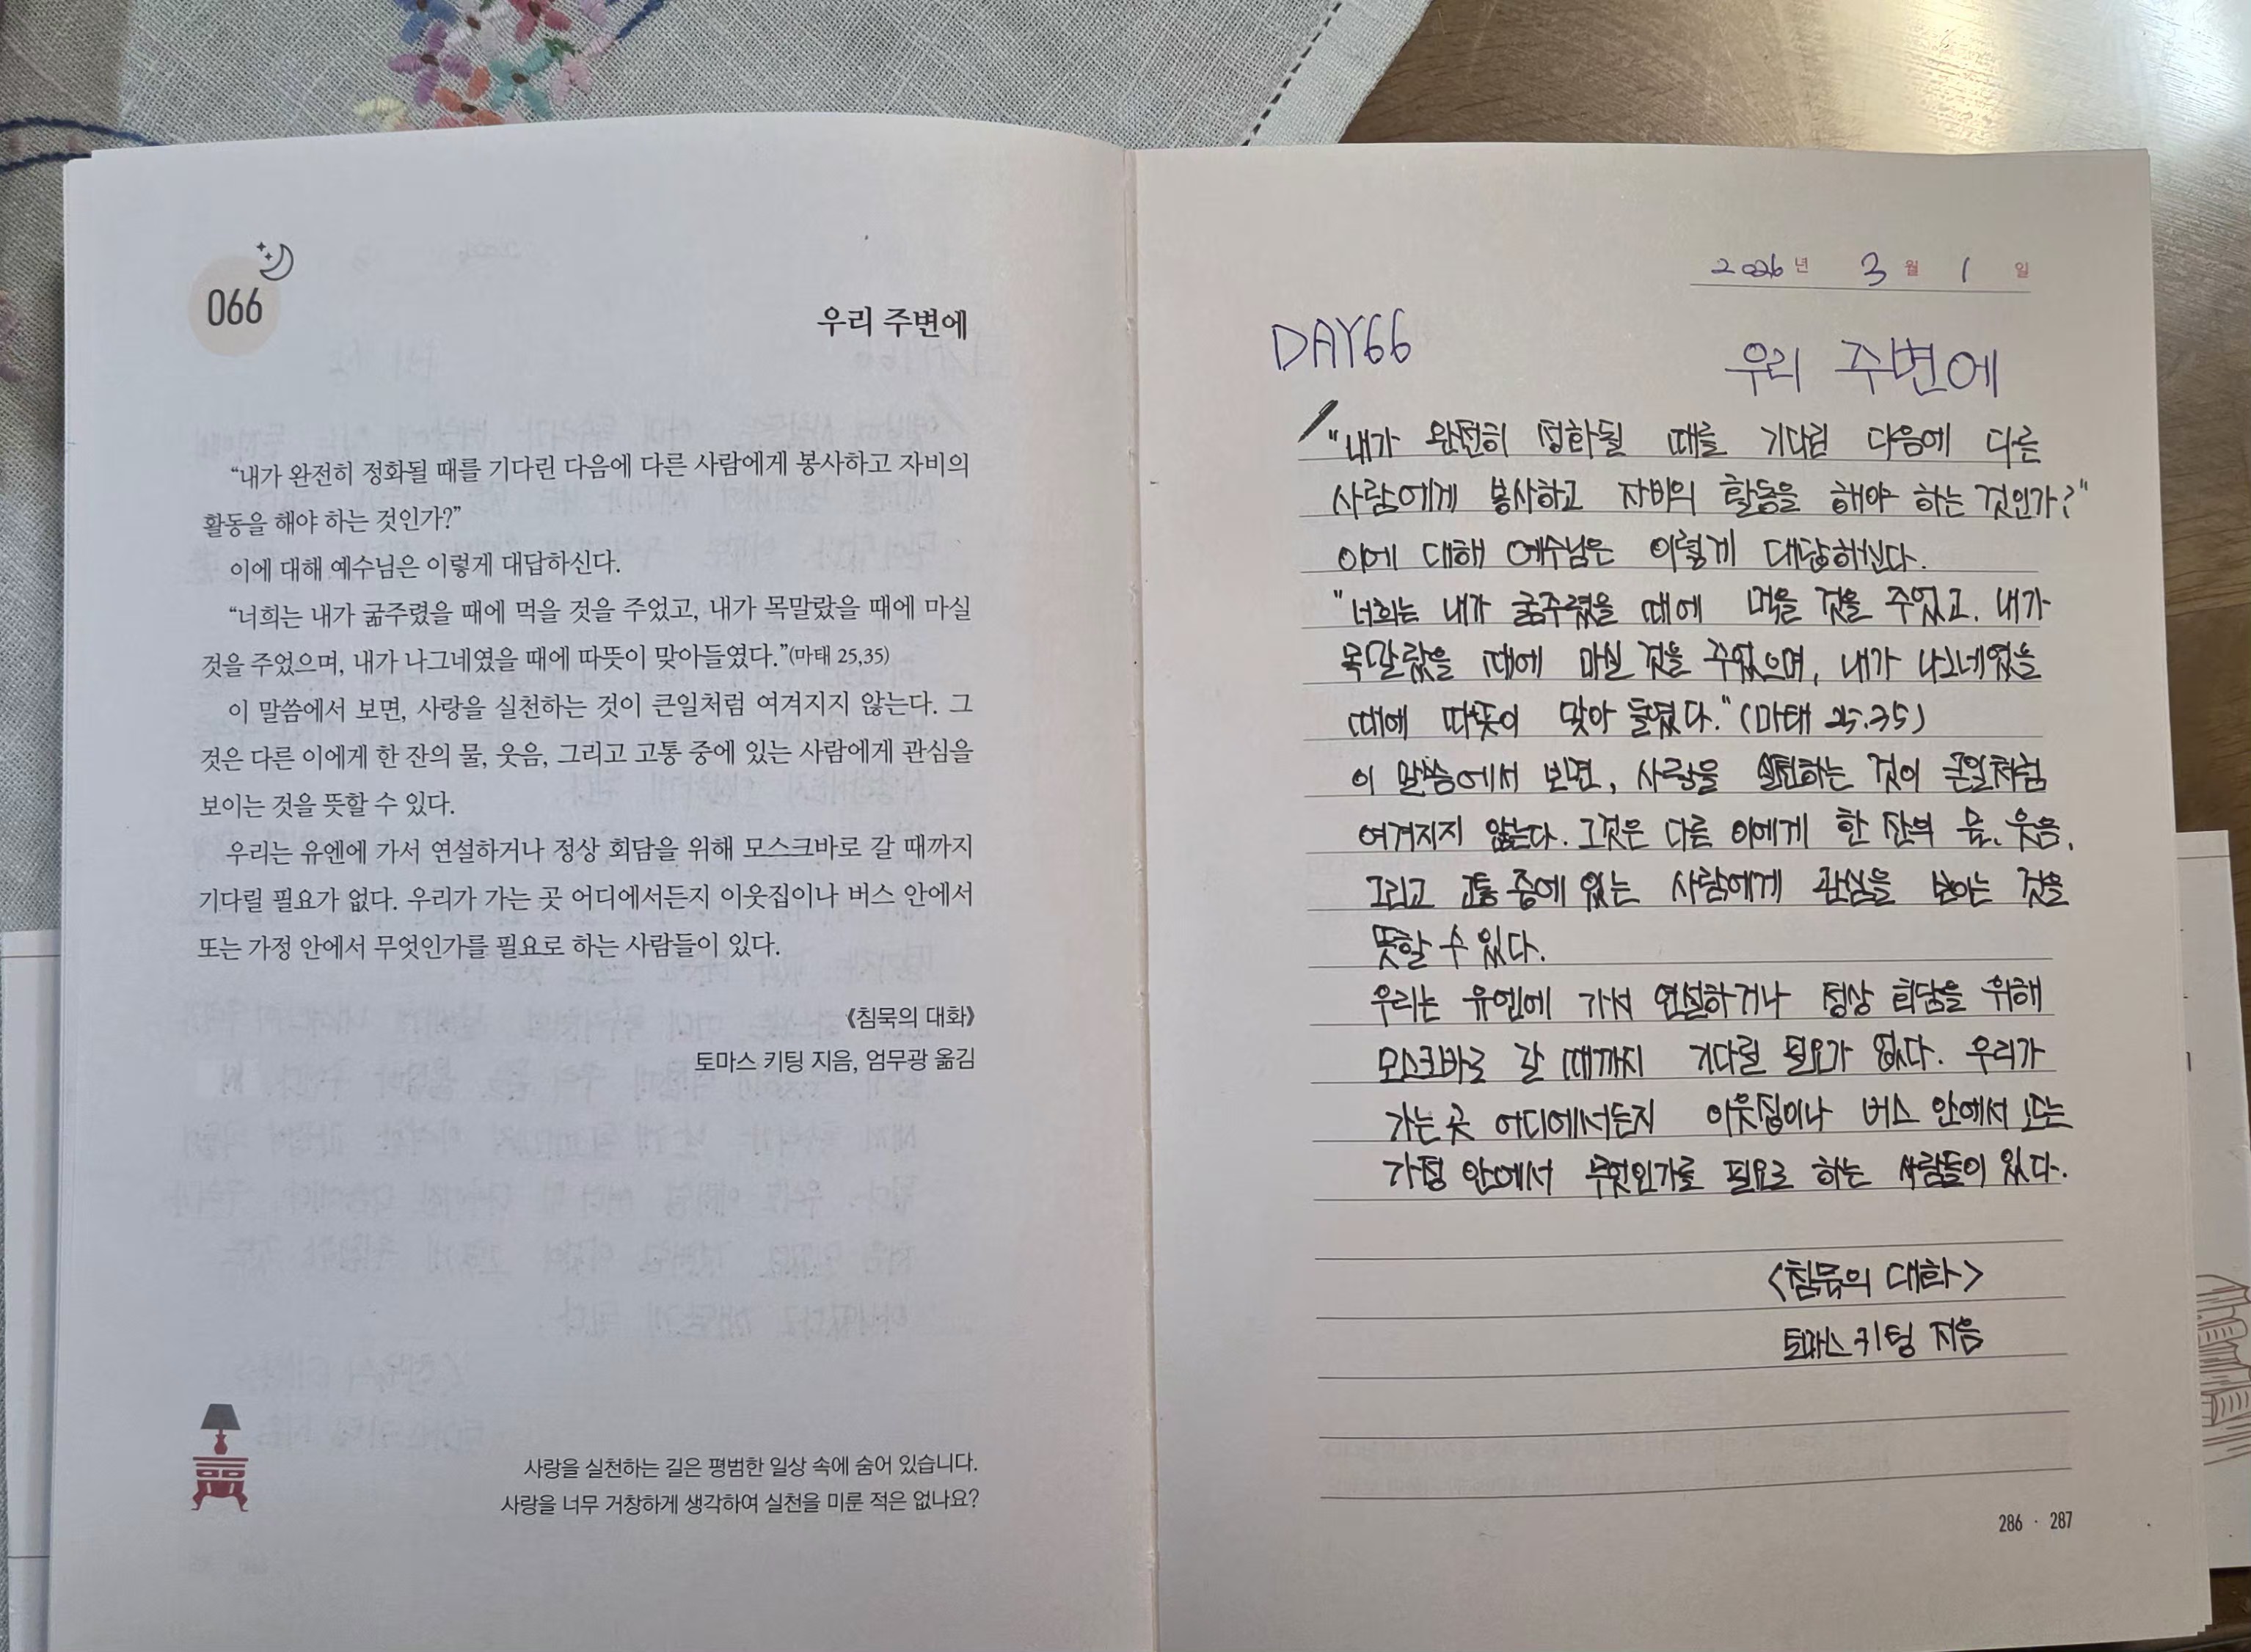 066
우리 주변에
“내가 완전히 정화될 때를 기다린 다음에 다른 사람에게 봉사하고 자비의
활동을 해야 하는 것인가?”
이에 대해 예수님은 이렇게 대답하신다.
“너희는 내가 굶주렸을 때에 먹을 것을 주었고, 내가 목말랐을 때에 마실
것을 주었으며, 내가 나그네였을 때에 따뜻이 맞아들였다.”(마태 25,35)
이 말씀에서 보면, 사랑을 실천하는 것이 큰일처럼 여겨지지 않는다. 그
것은 다른 이에게 한 잔의 물, 웃음, 그리고 고통 중에 있는 사람에게 관심을
보이는 것을 뜻할 수 있다.
우리는 유엔에 가서 연설하거나 정상 회담을 위해 모스크바로 갈 때까지
기다릴 필요가 없다. 우리가 가는 곳 어디에서든지 이웃집이나 버스 안에서
또는 가정 안에서 무엇인가를 필요로 하는 사람들이 있다.
《침묵의 대화》
토마스 키팅 지음, 엄무광 옮김
사랑을 실천하는 길은 평범한 일상 속에 숨어 있습니다.
사랑을 너무 거창하게 생각하여 실천을 미룬 적은 없나요?
2026년 3월 1일
DAY66
우리 주변에
"내가 완전히 정화될 때를 기다린 다음에 다른
사람에게 봉사하고 자비의 활동을 해야 하는 것인가?"
이에 대해 예수님은 이렇게 대답하신다.
"너희는 내가 굶주렸을 때에 먹을 것을 주었고, 내가
목말랐을 때에 마실 것을 주었으며, 내가 나그네였을
때에 따뜻이 맞아 들였다." (마태 25.35)
이 말씀에서 보면, 사랑을 실천하는 것이 큰일처럼
여겨지지 않는다. 그것은 다른 이에게 한 잔의 물, 웃음,
그리고 고통 중에 있는 사람에게 관심을 보이는 것을
뜻할 수 있다.
우리는 유엔에 가서 연설하거나 정상 회담을 위해
모스크바로 갈 때까지 기다릴 필요가 없다. 우리가
가는 곳 어디에서든지 이웃집이나 버스 안에서 또는
가정 안에서 무엇인가를 필요로 하는 사람들이 있다.
<침묵의 대화>
토마스 키팅 지음
286 · 287